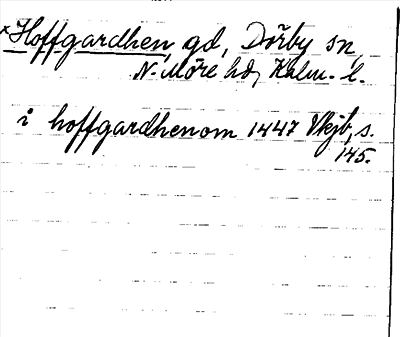 *Hoffgardhen, gd, Dörby sn,
N. Möre hd, Kalm. l.
i hoffgardhenom 1447 Vkjb, s.
145.